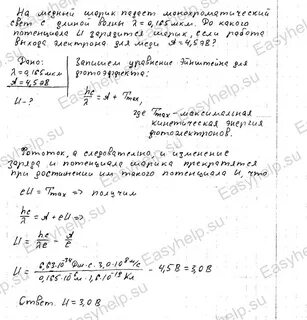 На медный шарик падает монохроматический
свет с длиной волны λ=0,165мкм. До какого
потенциала U зарядится шарик, если работа
выхода электрона для меди A=4,5эВ?
Дано:
λ=0,165мкм
A=4,5эВ
U-?
Запишем уравнение Эйнштейна для
фотоэффекта:
hc/λ = A + Tmax,
где Tmax - максимальная
кинетическая энергия
фотоэлектронов.
Фототок, а следовательно, и изменение
заряда и потенциала шарика прекратятся
при достижении им такого потенциала U, что
eU = Tmax => получим
hc/λ = A + eU =>
U = hc/λe - A/e
U = 6,63·10⁻³⁴Дж·с·3,0·10⁸м/с / 0,165·10⁻⁶м·1,6·10⁻¹⁹Кл - 4,5В = 3,0В
Ответ: U = 3,0В
EasyHelp.su